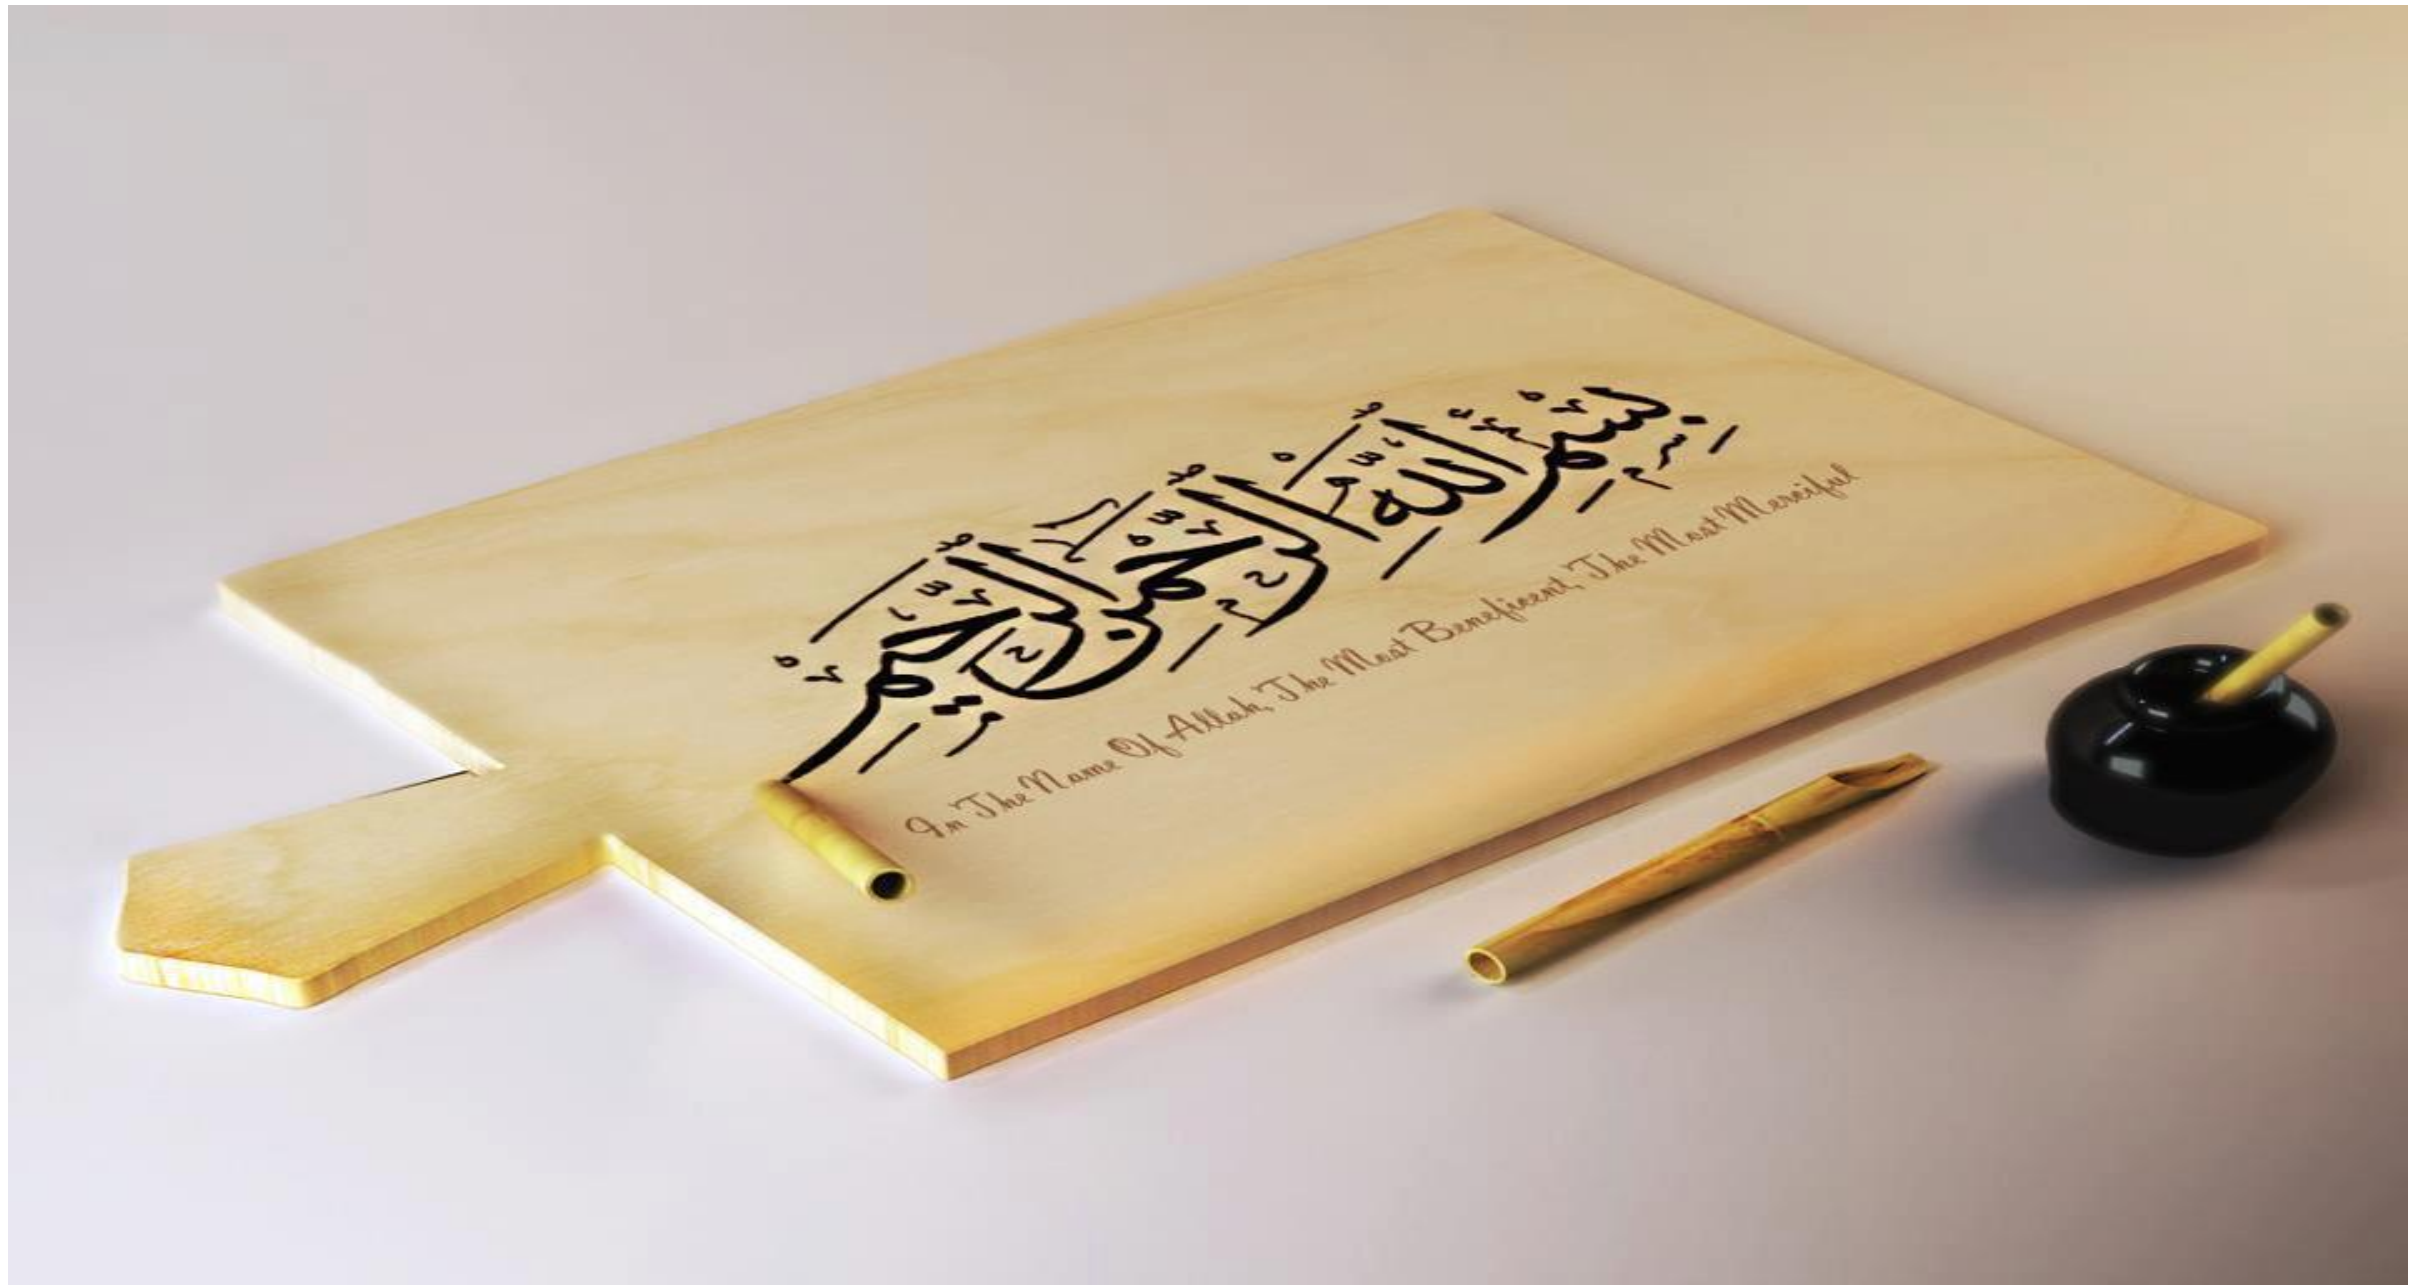 بِسْمِ اللَّهِ الرَّحْمَٰنِ الرَّحِيمِ
In The Name Of Allah, The Most Beneficent, The Most Merciful